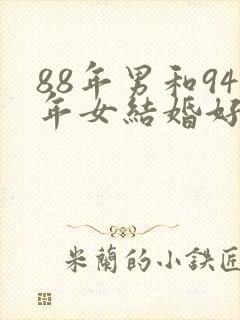 88年男和94
年女結婚好
米蘭的小鉄匠